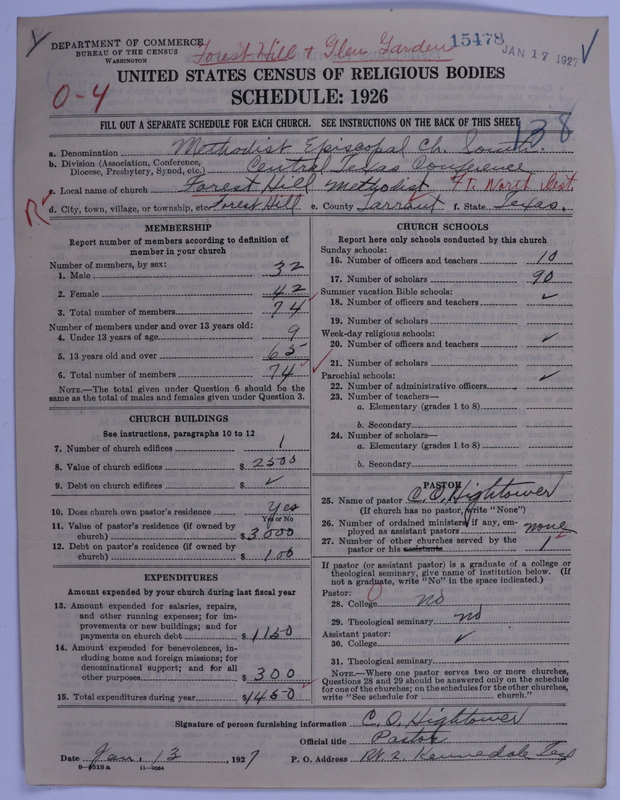 DEPARTMENT OF COMMERCE
BUREAU OF THE CENSUS
WASHINGTON
Forest Hill & Glen Garden
15478
JAN 17 1927
UNITED STATES CENSUS OF RELIGIOUS BODIES
0-4
SCHEDULE: 1926
FILL OUT A SEPARATE SCHEDULE FOR EACH CHURCH. SEE INSTRUCTIONS ON THE BACK OF THIS SHEET
138
a. Denomination Methodist Episcopal Ch. South.
b. Division (Association, Conference, Diocese, Presbytery, Synod, etc.) Central Texas Conference
c. Local name of church Forest Hill Methodist Ft. North Dist.
d. City, town, village, or township, etc. Forest Hill e. County Tarrant f. State Texas.
MEMBERSHIP
Report number of members according to definition of
member in your church
Number of members, by sex:
1. Male 32
2. Female 42
3. Total number of members 74
Number of members under and over 13 years old:
4. Under 13 years of age 9
5. 13 years old and over 65
6. Total number of members 74
NOTE.—The total given under Question 6 should be the
same as the total of males and females given under Question 3.
CHURCH BUILDINGS
See instructions, paragraphs 10 to 12
7. Number of church edifices 1
8. Value of church edifices $ 2500
9. Debt on church edifices $ ✓
10. Does church own pastor's residence Yes
Yes or No
11. Value of pastor's residence (if owned by
church) $ 3000
12. Debt on pastor's residence (if owned by
church) $ 100
EXPENDITURES
Amount expended by your church during last fiscal year
13. Amount expended for salaries, repairs,
and other running expenses; for im-
provements or new buildings; and for
payments on church debt $ 1150
14. Amount expended for benevolences, in-
cluding home and foreign missions; for
denominational support; and for all
other purposes $ 300
15. Total expenditures during year $ 1450
CHURCH SCHOOLS
Report here only schools conducted by this church
Sunday schools:
16. Number of officers and teachers 10
17. Number of scholars 90
Summer vacation Bible schools:
18. Number of officers and teachers ✓
19. Number of scholars
Week-day religious schools:
20. Number of officers and teachers ✓
21. Number of scholars
Parochial schools: ✓
22. Number of administrative officers
23. Number of teachers—
a. Elementary (grades 1 to 8)
b. Secondary
24. Number of scholars—
a. Elementary (grades 1 to 8)
b. Secondary
PASTOR
25. Name of pastor C. O. Hightower
(If church has no pastor, write "None")
26. Number of ordained ministers, if any, em-
ployed as assistant pastors none
27. Number of other churches served by the
pastor or his assistants 1
If pastor (or assistant pastor) is a graduate of a college or
theological seminary, give name of institution below. (If
not a graduate, write "No" in the space indicated.)
Pastor:
28. College no
29. Theological seminary no
Assistant pastor:
30. College ✓
31. Theological seminary
NOTE.—Where one pastor serves two or more churches,
Questions 28 and 29 should be answered only on the schedule
for one of the churches; on the schedules for the other churches,
write "See schedule for church."
Signature of person furnishing information C. O. Hightower
Official title Pastor
Date Jan. 13, 1927 P. O. Address Rt. 2 Kennedale Tex
8—4518 a 11—9064